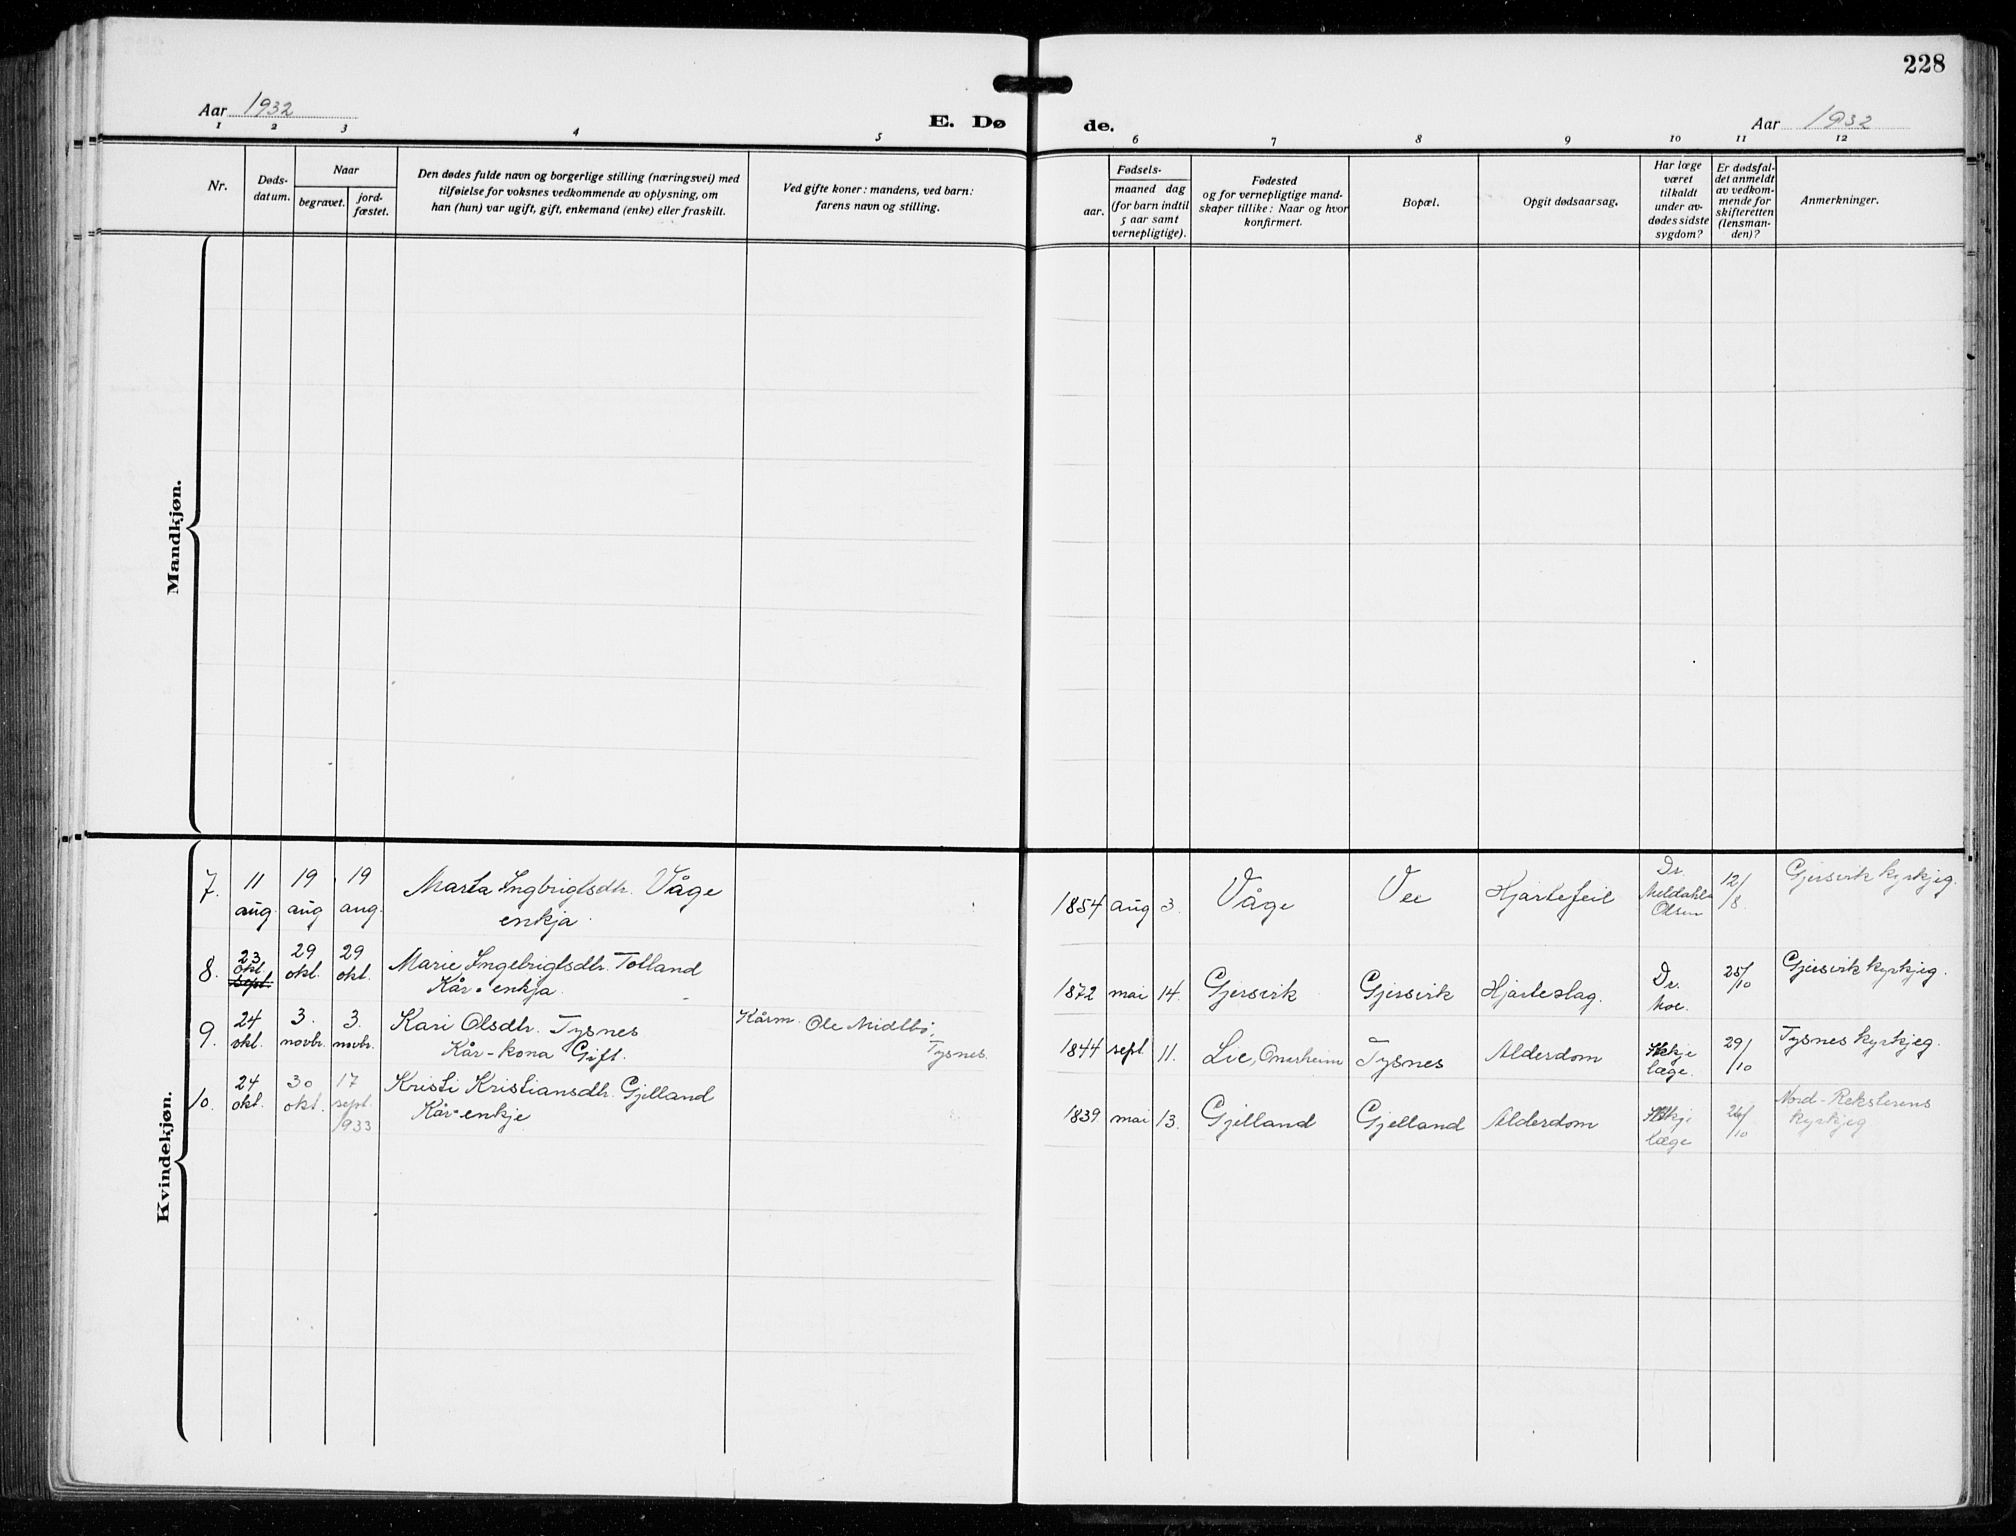 228
Aar 1932
E. Dø
de.
Aar 1932
1 2 3 4 5 6 7 8 9 10 11 12
Nr.
Døds-
datum.
Naar
begravet.
jord-
fæstet.
Den dødes fulde navn og borgerlige stilling (næringsvei) med
tilføielse for voksnes vedkommende av oplysning, om
han (hun) var ugift, gift, enkemand (enke) eller fraskilt.
Ved gifte koner: mandens, ved barn:
farens navn og stilling.
Fødsels-
aar.
maaned dag
(for barn indtil
5 aar samt
vernepligtige).
Fødested
og for vernepligtige mand-
skaper tillike: Naar og hvor
konfirmert.
Bopæl.
Opgit dødsaarsag.
Har læge
været
tilkaldt
under av-
dødes sidste
sygdom?
Er dødsfal-
det anmeldt
av vedkom-
mende for
skifteretten
(lensman-
den)?
Anmerkninger.
Mandkjøn.
Kvindekjøn.
7. 11 aug 19 aug 19 aug. Marta Ingbrigtsdtr. Våge
enkja.
1854 aug 3. Våge Vee Hjartefeil Dr. Meldahl Olsen 12/8. Gjersvik kyrkjeg.
8. 23 okt. sept. 29 okt. 29 okt. Marie Ingebrigtsdtr. Tolland
Kår-enkja.
1872 mai 14. Gjersvik Gjersvik Hjarteslag. Dr. Moe. 25/10 Gjersvik kyrkjeg.
9. 24 okt. 3. novbr. 3. novbr. Kari Olsdtr. Tysnes
Kår-kona Gift.
Kårm. Ole Midtbø,
Tysnes.
1844 sept 11. Lie, Onarheim Tysnes Alderdom Ikkje læge. 29/10 Tysnes kyrkjeg.
10. 24 okt. 30 okt. 17 sept. 1933 Kristi Kristiansdtr. Gjelland
Kår-enkje
1839 mai 13. Gjelland Gjelland Alderdom Ikkje læge 26/10 Nord-Reksterens
kyrkjeg